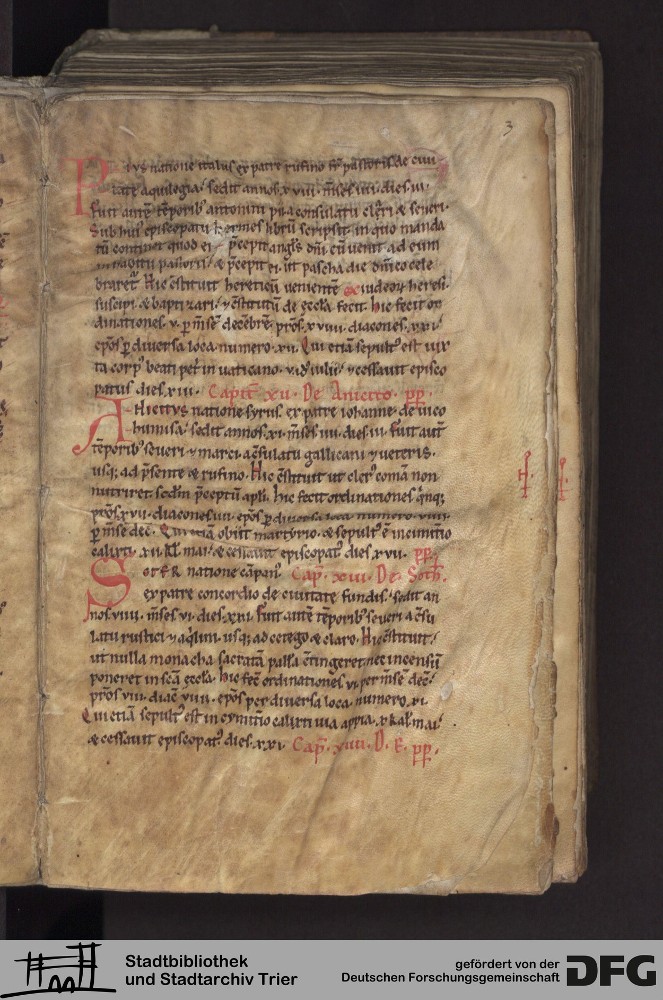 3
Pius natione italus ex patre rufino fr̄ pastoris de ciui
tate aquilegia. sedit annos. x viii. m̄ses. iiii. dies. iii.
Fuit autē tēporib; antonini pii a consulatu clari & seueri.
Sub hui' episcopatu hermes librū scripsit in quo manda
tū continet quod ei p̄cepit angl's dn̄i cū uenit ad eum
in habitu pastoris. & p̄cepit ei ut pascha die dn̄ico cele
braret᷑. Hic ɔ̄stituit hereticū uenientē ex iudeoꝝ heresi.
suscipi. & baptizari. & ɔ̄stitutū de eccła fecit. hic fecit or
dinationes. v. ꝑ m̄sē decēbrē. pr̄os. x viiii. diacones. xxi.
ep̄os ꝑ diuersa loca. numero. xii. Qui etiā sepult' est iux
ta corp' beati petri in uaticano. v. id' iulii. & cessauit episco
patus dies. xiii. Capit̄. xii. De Anicito. pp̄.
Anicitus natione syrus. ex patre iohanne. de uico
humisa. sedit annos. xi. m̄ses. iiii. dies. iii. Fuit autē
tēporib; seueri & marci. a ɔ̄sulatu gallicani & ueteris.
usq; ad p̄sente & rufino. Hic ɔ̄stituit ut cler' comā non
nutriret. sedm̄ p̄ceptū apl̄i. hic fecit ordinationes q̄nq;.
pr̄os. x vii. diacones. iiii. ep̄os ꝑ diuersa loca. numero. viiii.
ꝑ m̄se dec̄. Qui etiā obiit martyrio. & sepult' ē in cimitio
calixti. xii. kl̄. mai. & cessauit episcopat' dies. x vii. pp̄.
Soter natione cāpan'. Cap̄. xiii. De. Soth̄.
ex patre concordio de ciuitate fundis. sedit an
nos. viiii. m̄ses. vi. dies. xxi. Fuit autē tēporib; seueri a ɔ̄su
latu rustici & aq̄lini. usq; ad cetego & claro. Hic ɔ̄stituit.
ut nulla monacha sacratā pallā ɔ̄tingeret. nec incensū
poneret in sc̄a eccła. hic fec̄ ordinationes. vi. per m̄se dec̄.
pr̄os. viii. diac̄. viiii. ep̄os per diuersa loca. numero. xi.
Qui etiā sepult' est in cymitio calixti uia appia. x kal̄. mai.
& cessauit episcopat' dies. xxi. Cap̄. xiiii. D. E. pp̄.
Stadtbibliothek
und Stadtarchiv Trier
gefördert von der
Deutschen Forschungsgemeinschaft
DFG